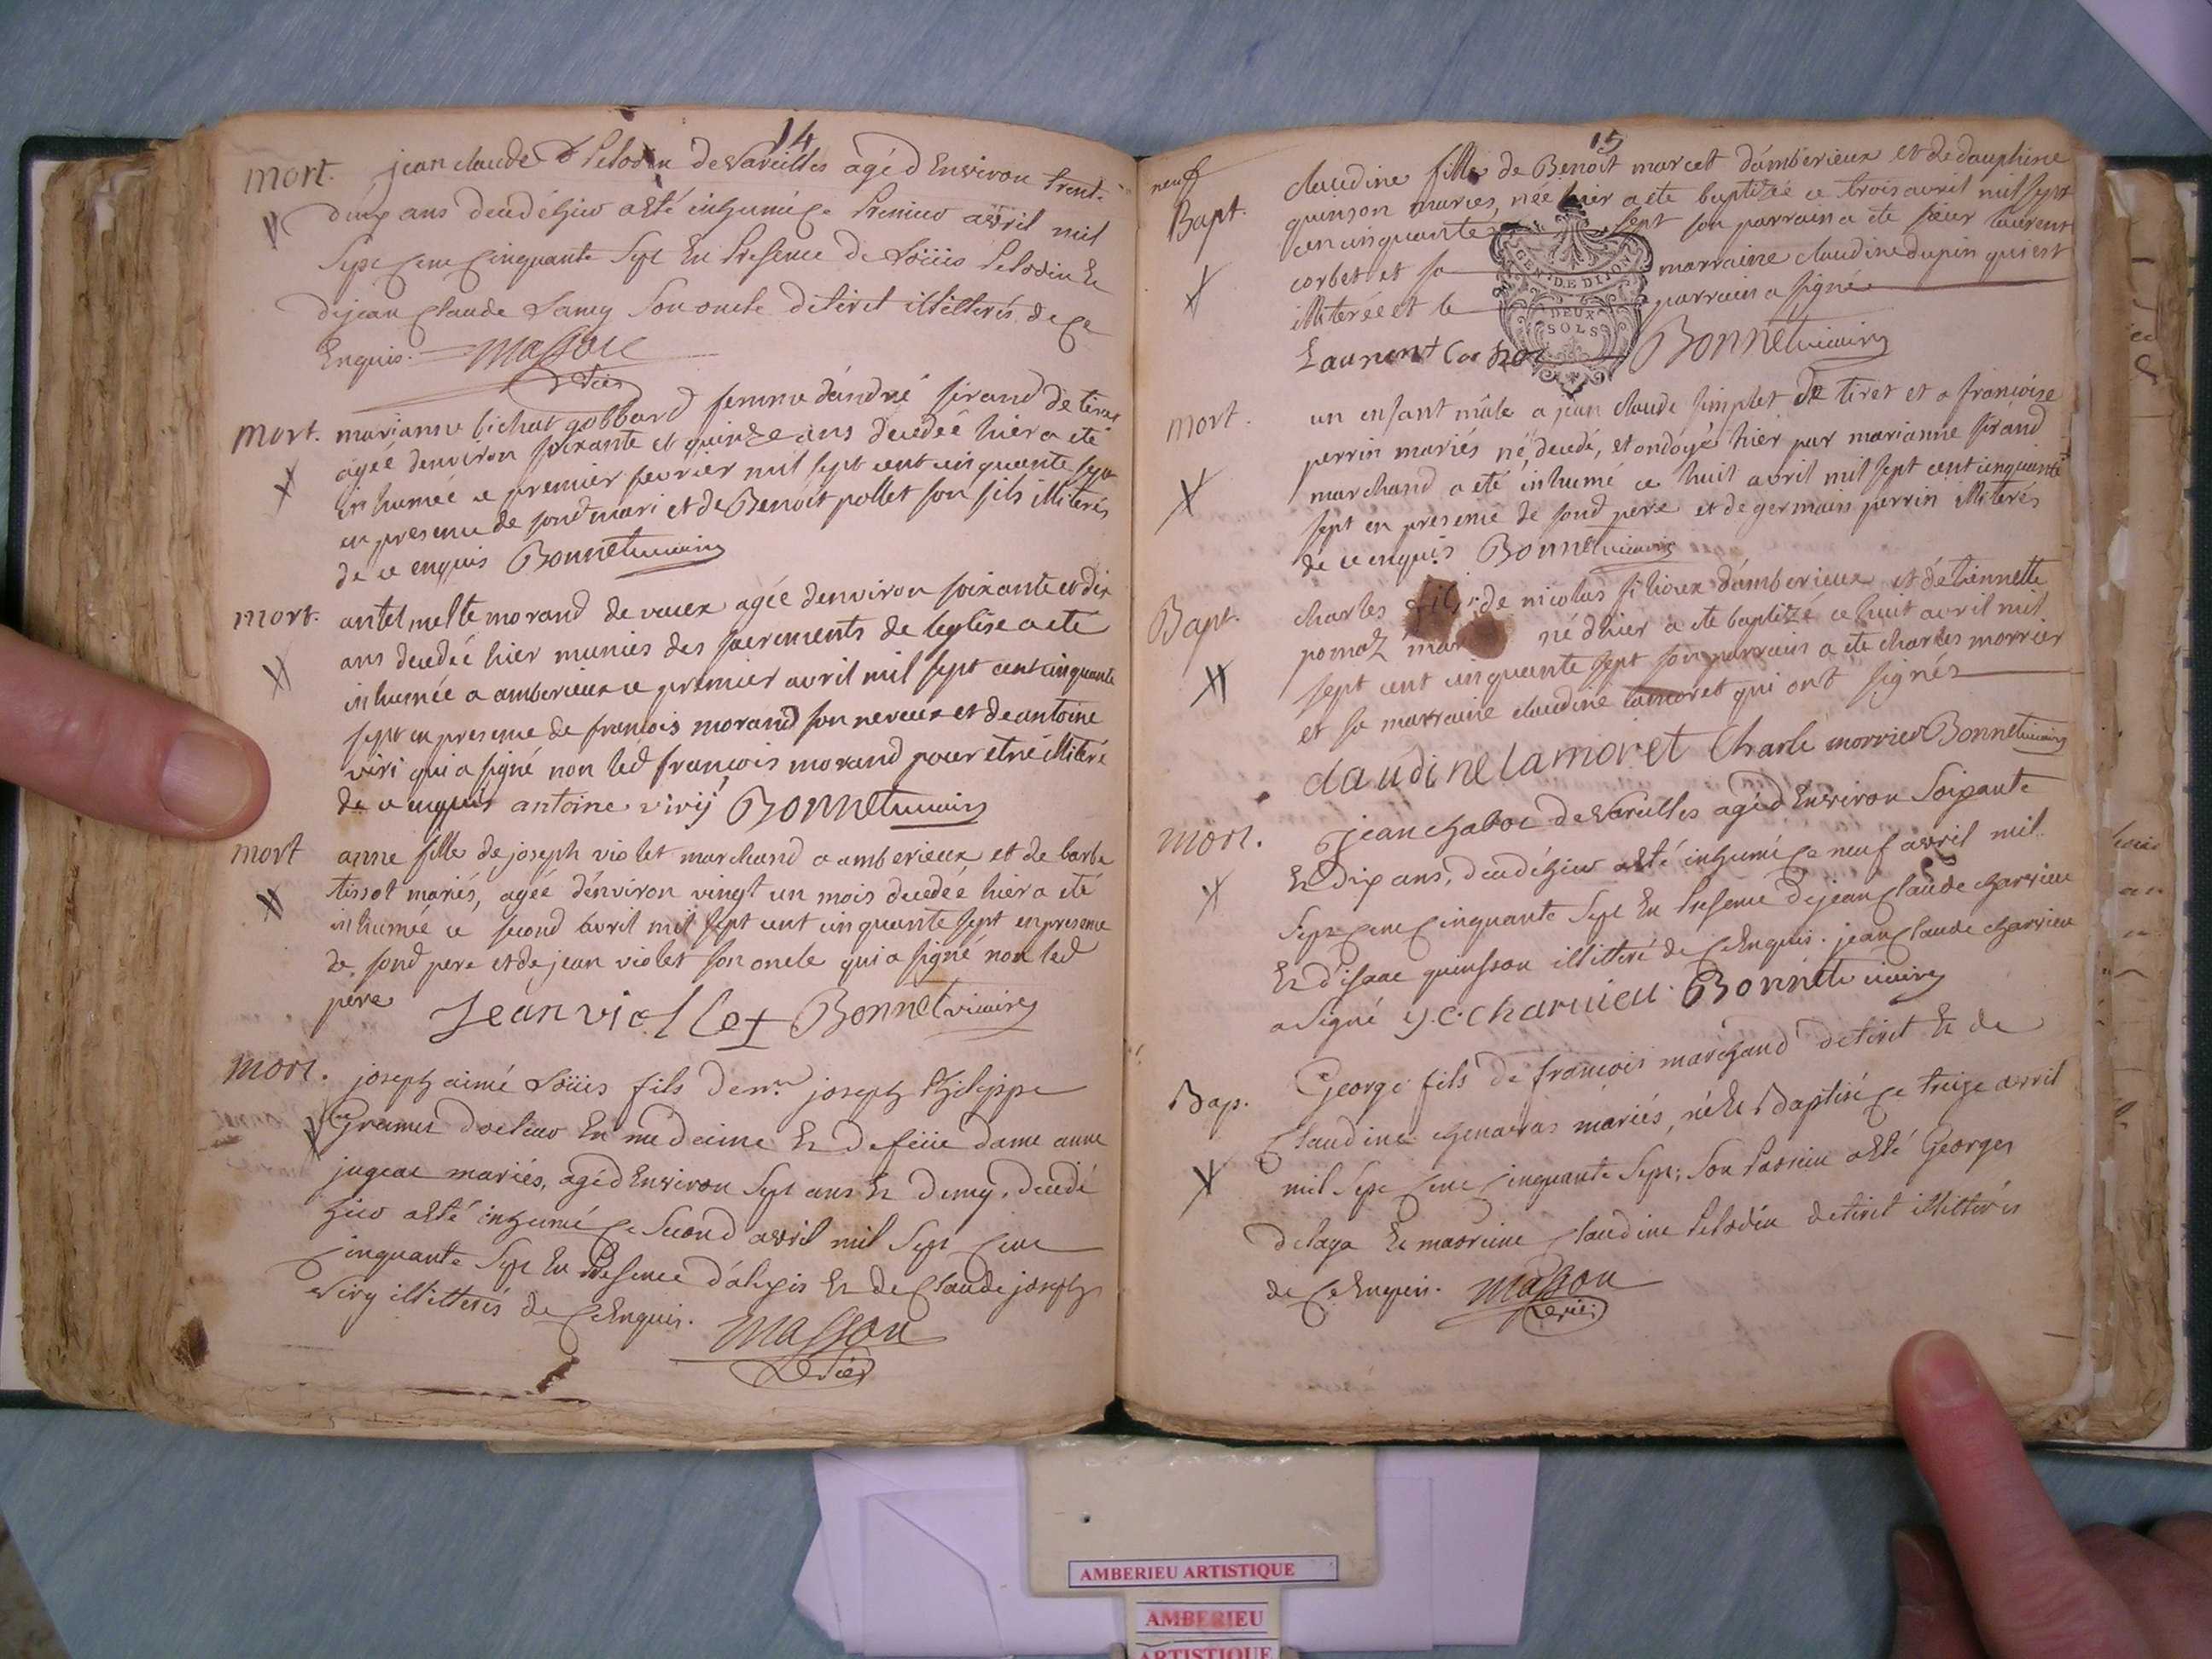 14
mort. jean claude Pelodin de Vareilles agé d Environ trent-
deux ans decedé hier a eté inhumé ce Premier avril mil
Sept Cent Cinquante Sept En Presence de Loüis Pelodin Et
de jean Claude Lamy Son oncle de tiret illitterés de ce
Enquis. Masson
mort. marianne bichat gobbard femme d'andré sirand de tiret
agée denviron soixante et quinze ans decedée hier a eté
inhumée ce premier fevrier mil sept cent cinquante sept
en presence de sond mari et de Benoit pollet son fils illiterés
de ce enquis Bonnet vicaire
mort. antelmette morand de vaux agée denviron soixante et dix
ans decedée hier munies des sacrements de leglise a ete
inhumée a amberieux ce premier avril mil sept cent cinquante
sept en presence de francois morand son neveux et de antoine
viri qui a signé non led francois morand pour etre illiteré
de ce enquis antoine viry Bonnet vicaire
mort anne fille de joseph violet marchand a amberieux et de barbe
tissot mariés, agée d'environ vingt un mois decedée hier a eté
inhumée ce second avril mil sept cent cinquante sept en presence
de sond pere et de jean violet son oncle qui a signé non led
pere Jean viollet Bonnet vicaire
mort. joseph aimé Loüis fils de mr. joseph Philippe
Grumet docteur En medecine Et de feüe dame anne
jugeat mariés, agé d Environ Sept ans Et demy, decedé
hier a eté inhumé ce Second avril mil Sept Cent
Cinquante Sept En Presence d'alexis Et de Claude joseph
Viry illitterés de ce Enquis. Masson
15
neuf
Bapt. claudine fille de Benoit marcet d'amberieux et de dauphine
quinson maries, née hier a ete baptizée ce trois avril mil sept
cen cinquante sept son parrain a ete sieur laurent
corbet et sa marraine claudine dupin qui est
illiterée et le parrain a signé
GEN. DE DIJON
DEUX
SOLS
Laurent Bonnet vicaire
mort. un enfant mâle a jean claude simplet de tiret et a francoise
perrin mariés né decedé, et ondoyé hier par marianne sirand
marchand a eté inhumé ce huit avril mil sept cent cinquante
sept en presence de sond pere et de germain perrin illiterés
de ce enquis Bonnet vicaire
Bapt. charles fils de nicolas d'amberieux et d'etiennette
né d'hier a ete baptizé ce huit avril mil
sept cent cinquante sept son parrain a ete charles morrier
et sa marraine claudine lamoret qui ont signés
claudine lamoret Charle morrier Bonnet vicaire
mort. jean chabot de Vareilles agé d Environ Soixante
Et dix ans, decedé hier a eté inhumé ce neuf avril mil
Sept Cent Cinquante Sept En Presence de jean Claude charvieu
Et d'isaac quinsson illitteré de ce Enquis. jean Claude charvieu
a Signé j. c. charvieu. Bonnet vicaire
Bap. George fils de francois marchand de tiret Et de
Claudine chenavas mariés, né Et Baptisé ce treize avril
mil Sept Cent Cinquante Sept; Son Parrein a eté Georges
delaya Et marreine Claudine Pelodin de tiret illitterés
de ce Enquis. Masson
AMBERIEU ARTISTIQUE
AMBERIEU
ARTISTIQUE